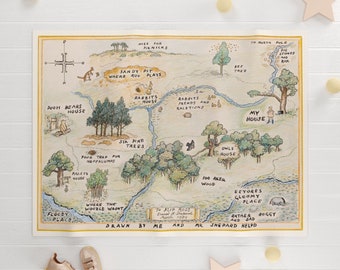 NICE FOR
PIKNICKS
TO NORTH POLE
BIG
STONES
AND
ROX
SANDY PIT
WHERE ROO PLAYS
BEE
TREE
RABBITS
HOUSE
RABBITS
FRENDS AND
RALETIONS
POOH BEARS
HOUSE
MY
HOUSE
SIX PINE
TREES
POOH TRAP FOR
HEFFALUMPS
OWLS
HOUSE
100 AKER
WOOD
HOUSE
WHERE THE
WOOZLE WASNT
EEYORES
GLOOMY
PLACE
FLOODY
PLACE
AND SAD
BOGGY
DRAWN BY ME AND MR SHEPARD HELPD